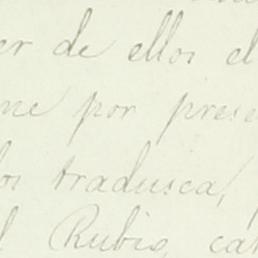 er de ellos el
me por prese
los tradusca,
l Rubio, ca